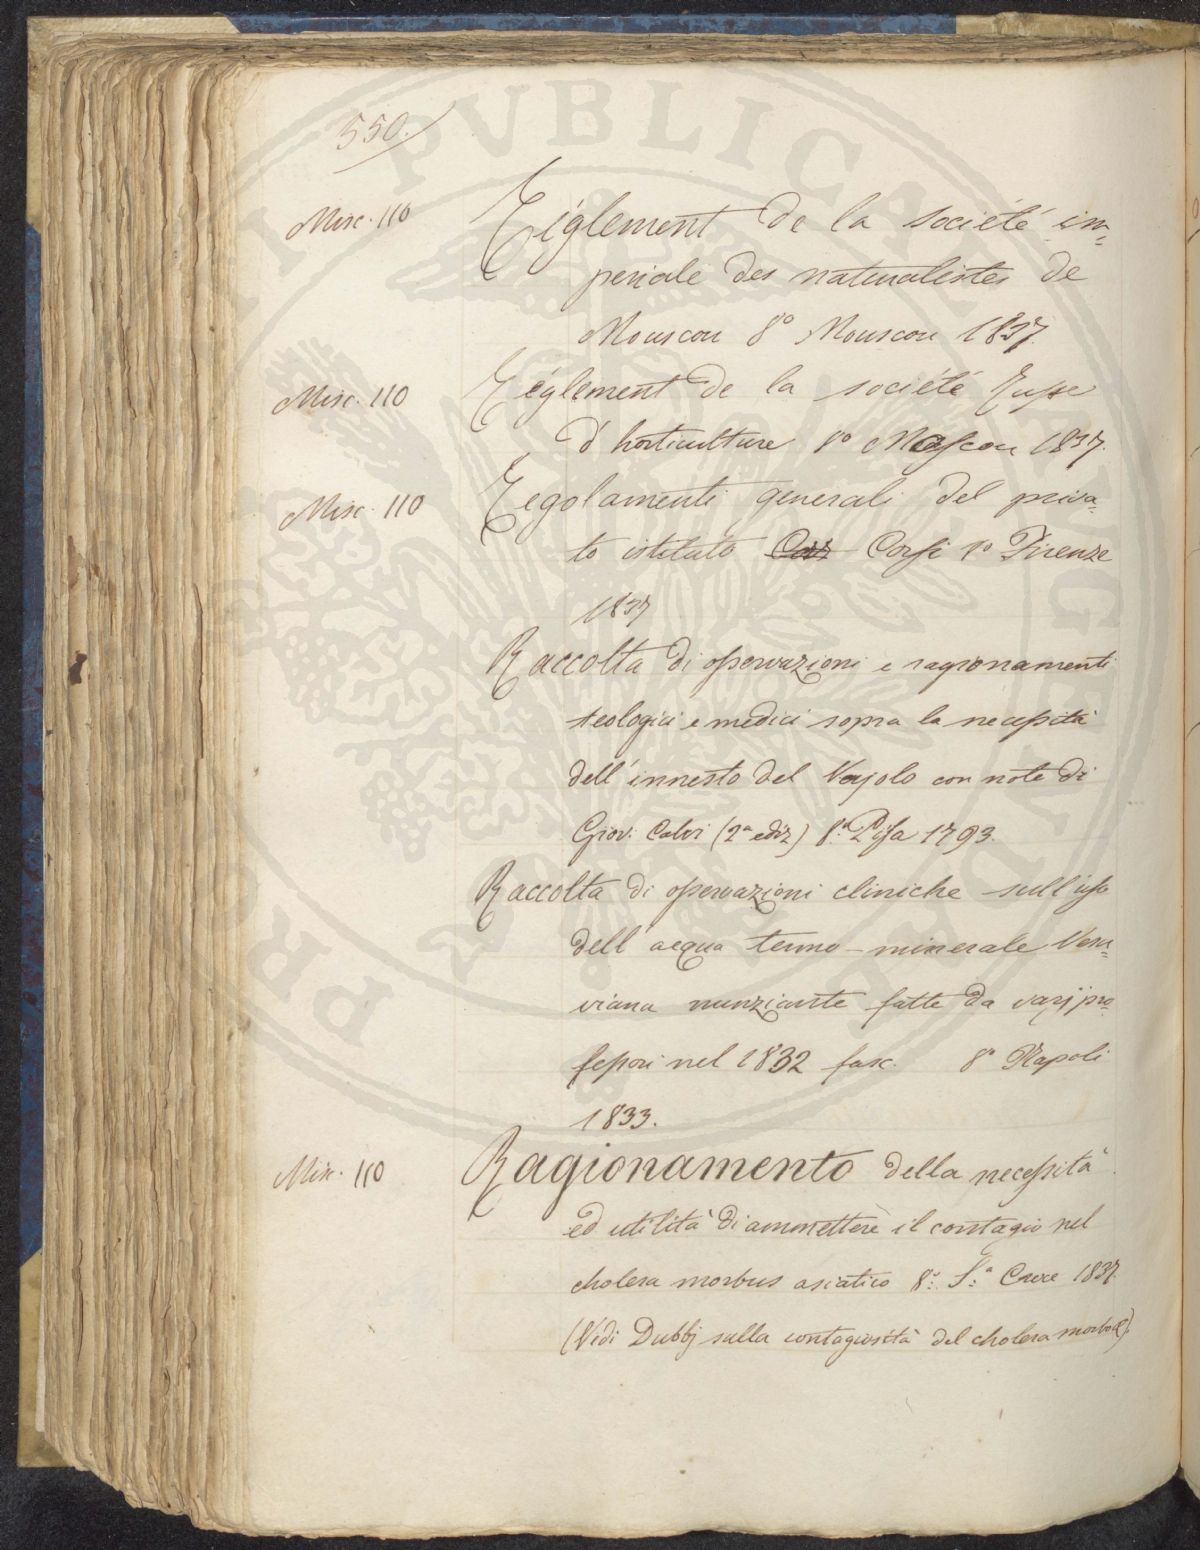 550.
Misc. 110
Réglement de la société im=
periale des naturalistes de
Mouscou 8° Mouscou 1837.
Misc. 110
Réglement de la société Russe
d'horticulture 8° Moscou 1837.
Misc. 110
Regolamenti generali del priva=
to istituto Corsi 8° Firenze
1837
Raccolta di osservazioni e ragionamenti
teologici e medici sopra la necessità
dell'innesto del Vajolo con note di
Giov. Calvi (2ª ediz) 8.° Pisa 1793.
Raccolta di osservazioni cliniche sull'uso
dell'acqua termo-minerale Vesu=
viana nunziante fatte da varj pro=
fessori nel 1832 fasc. 8° Napoli
1833.
Misc. 110
Ragionamento della necessità
ed utilità di ammettere il contagio nel
cholera morbus asiatico 8.° S.ª Croce 1837.
(Vedi Dubbj sulla contagiosità del cholera morbus)